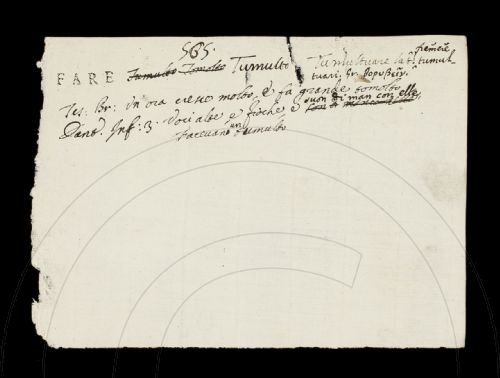 565.
FARE Tumulto Tomolto Tumulto Tumultuare lat. fremere tumul-
tuari. Gr. θορυβεῖν.
Tes: Br: in ora cresce molto, e fa grande tomolto
Dant. Inf: 3. Voci alte e fioche e suon di man con elle,
Facevano un tumulto